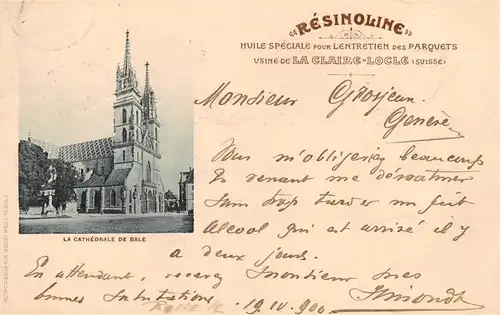 «RÉSINOLINE»
HUILE SPÉCIALE POUR L'ENTRETIEN DES PARQUETS
USINE DE LA CLAIRE-LOCLE (SUISSE)
Monsieur Grosjean
Genève
Vous m'obligeriez beaucoup
en venant me
sans trop tarder un fût
alcool qui est arrivé il y
a deux jours.
En attendant, recevez Monsieur mes
bonnes salutations
19 IV 900
LA CATHÉDRALE DE BALE